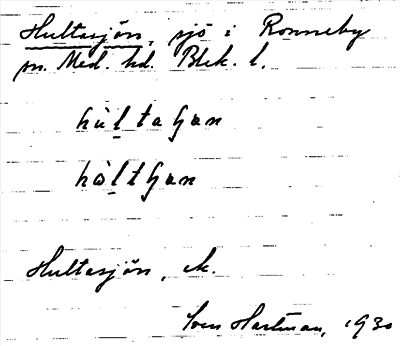 Hultasjön, sjö i Ronneby
sn. Med. hd. Blek. l.
hùltaɧən
hòltɧən
Hultasjön, ek.
Sven Hartman, 1930